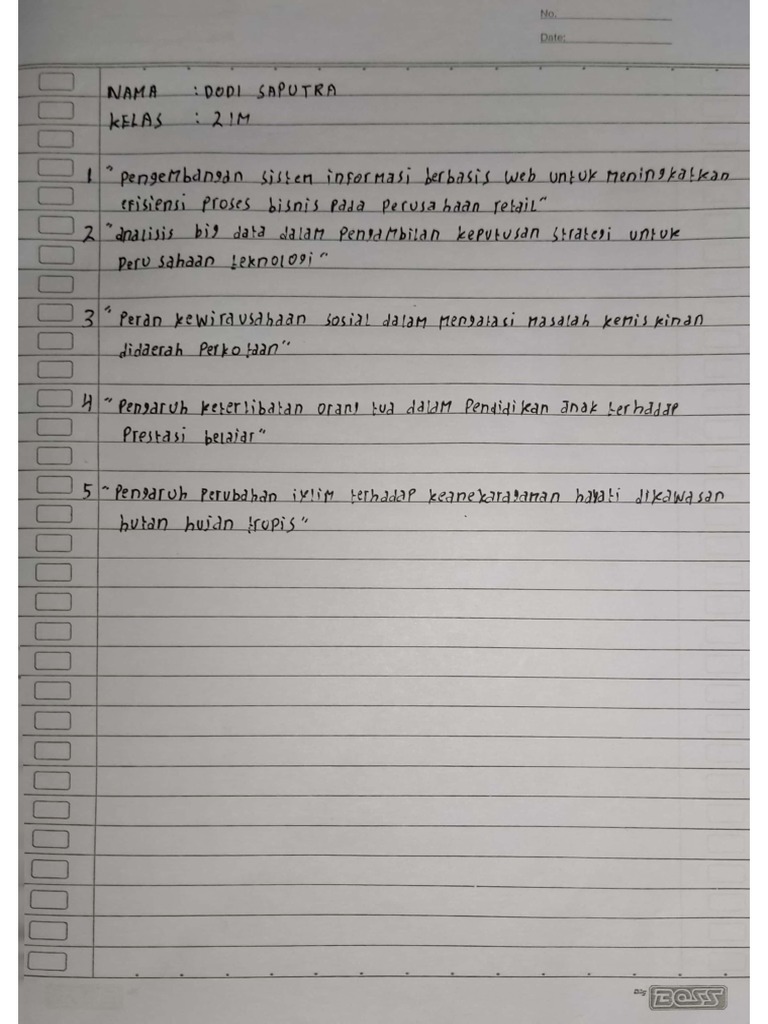 No.
Date:
NAMA : DODI SAPUTRA
KELAS : 21M
1 "Pengembangan sistem informasi berbasis web untuk meningkatkan
efisiensi proses bisnis pada perusahaan retail"
2 "analisis big data dalam pengambilan keputusan strategi untuk
perusahaan teknologi"
3 "Peran kewirausahaan sosial dalam mengatasi masalah kemiskinan
didaerah Perkotaan"
4 "Pengaruh keterlibatan orang tua dalam Pendidikan anak terhadap
Prestasi belajar"
5 "Pengaruh Perubahan iklim terhadap keanekaragaman hayati dikawasan
hutan hujan tropis"
BOSS